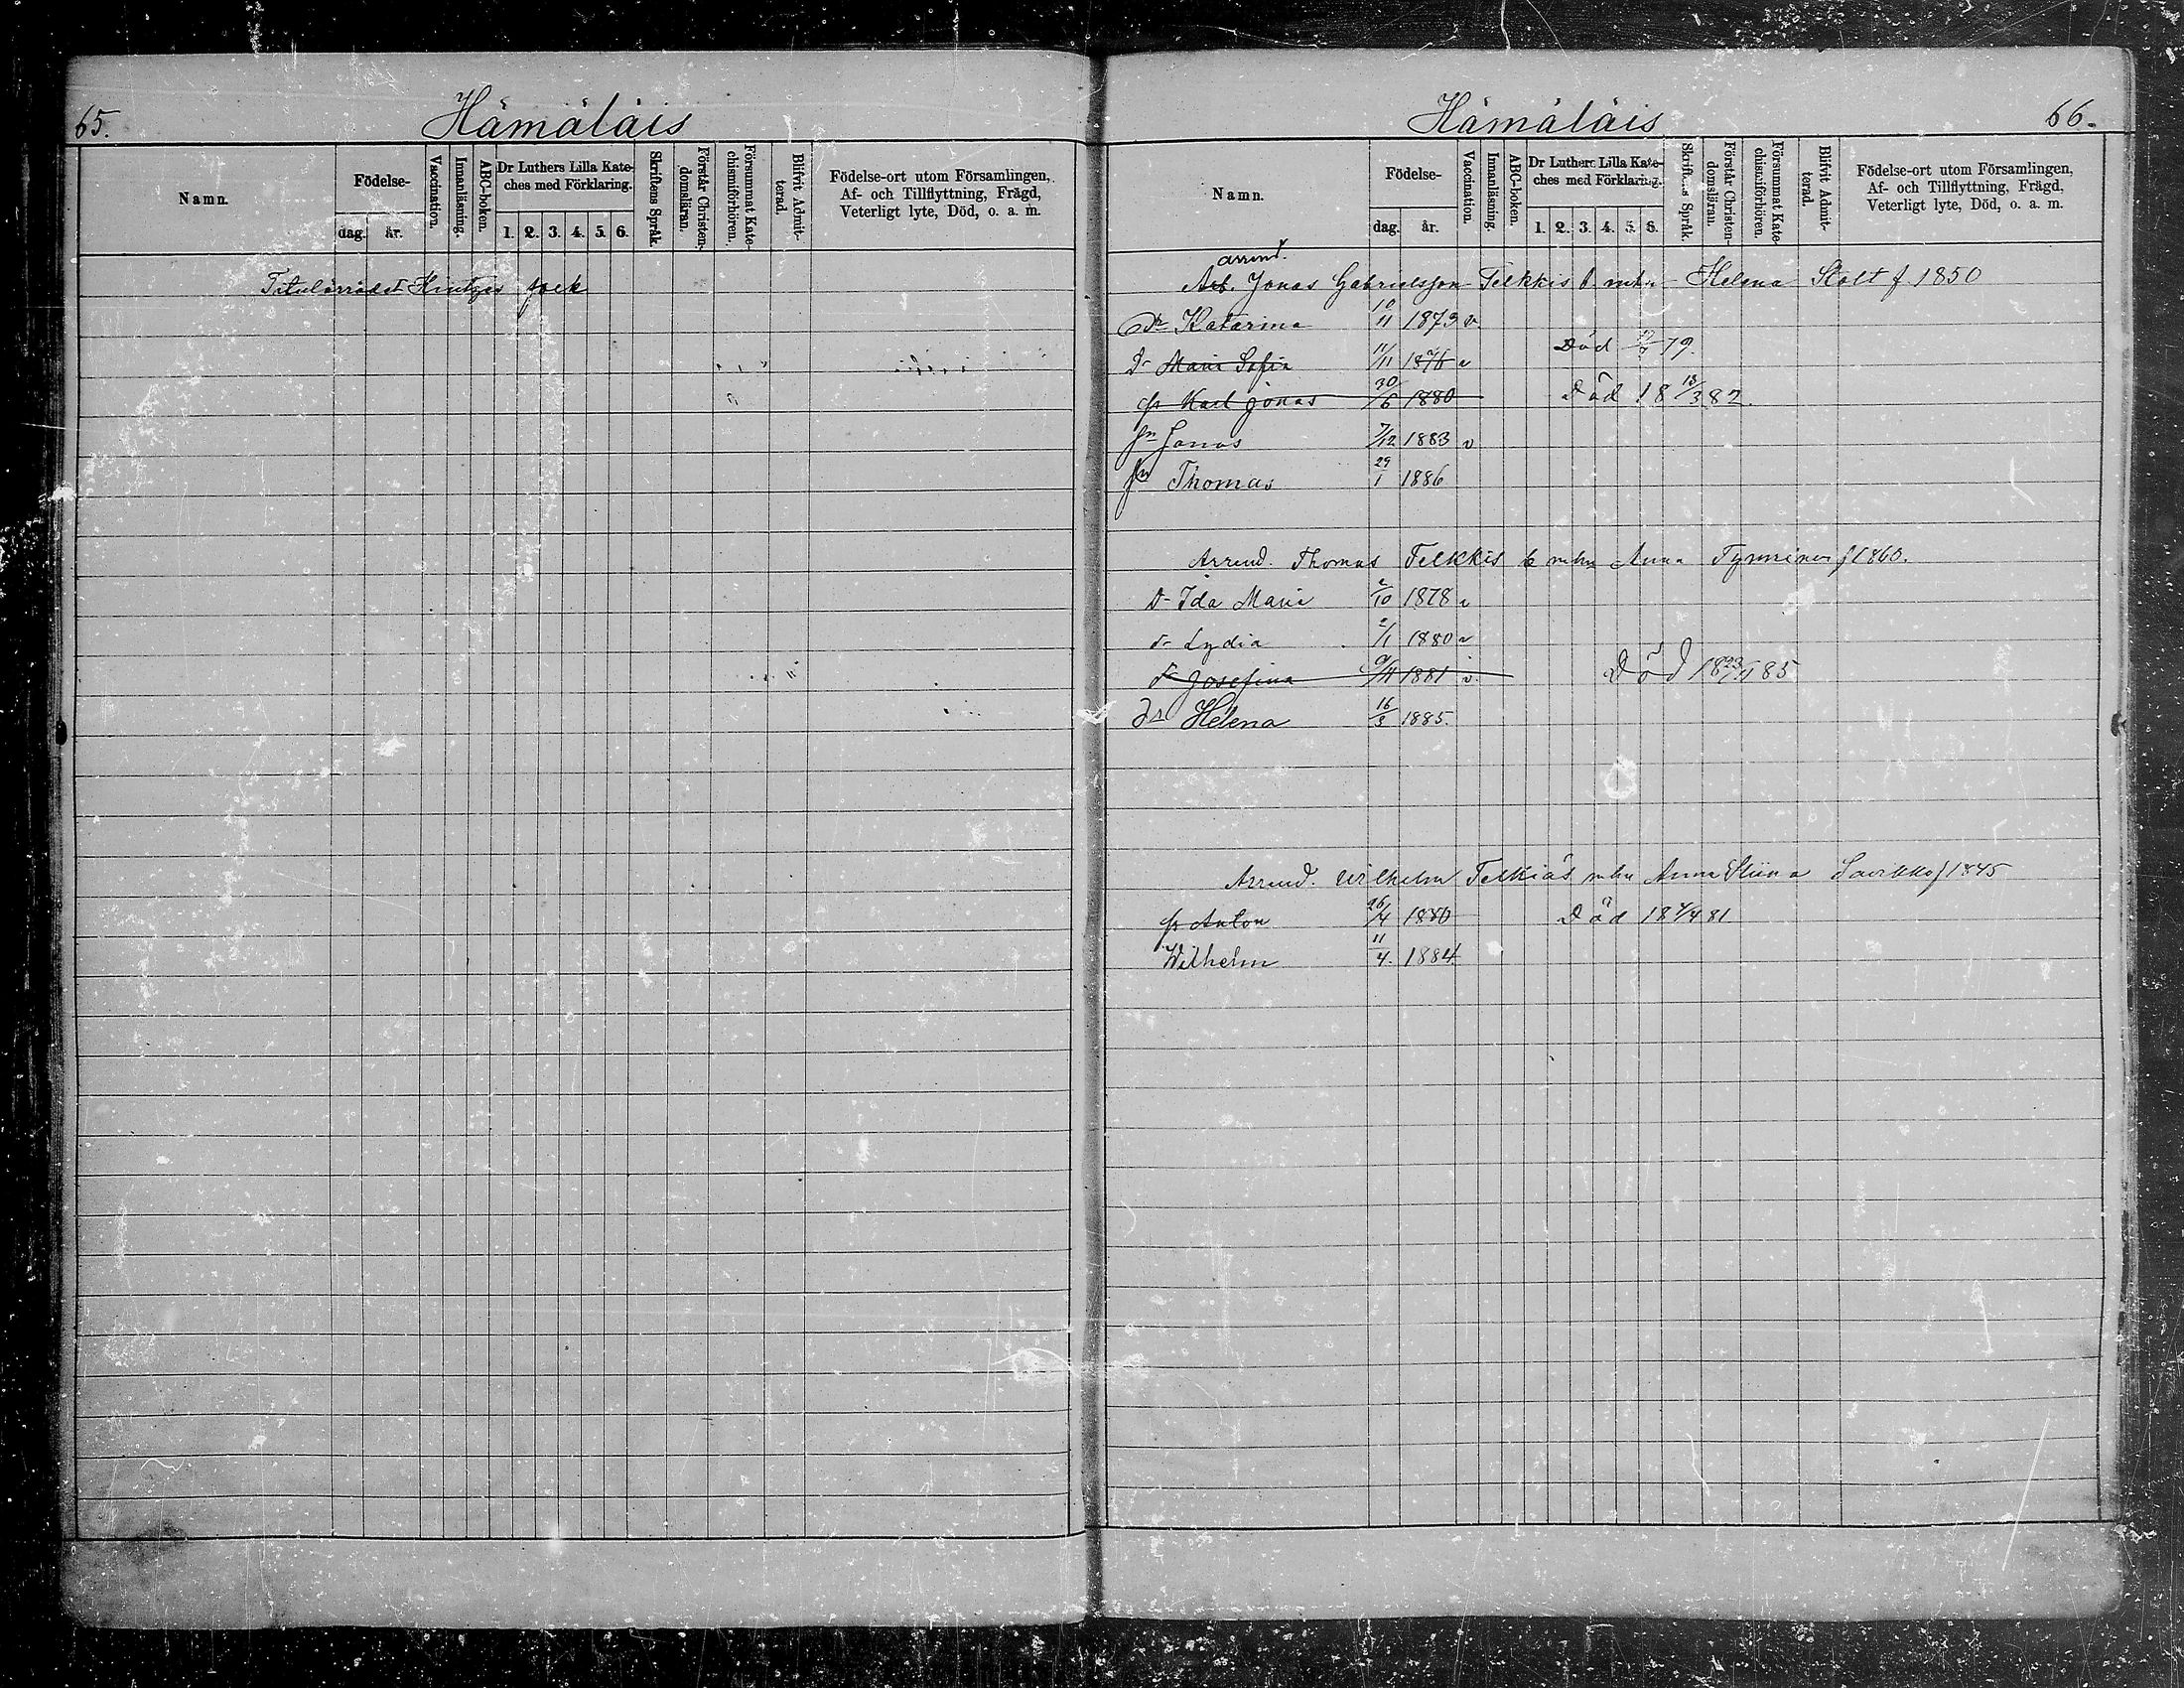 65.
Hämäläis
Namn.
Födelse-
dag.
år.
Vaccination.
Innanläsning.
ABC-boken.
Dr Luthers Lilla Kate-
ches med Förklaring.
1. 2. 3. 4. 5. 6.
Skriftens Språk.
Förstår Christen-
domsläran.
Försummat Kate-
chismiförhören.
Blifvit Admit-
terad.
Födelse-ort utom Församlingen,
Af- och Tillflyttning, Frägd,
Veterligt lyte, Död, o. a. m.
Titulärrådet Hintzes folk
Hämäläis
66.
Namn.
Födelse-
dag.
år.
Vaccination.
Innanläsning.
ABC-boken.
Dr Luthers Lilla Kate-
ches med Förklaring.
1. 2. 3. 4. 5. 6.
Skriftens Språk.
Förstår Christen-
domsläran.
Försummat Kate-
chismiförhören.
Blifvit Admit-
terad.
Födelse-ort utom Församlingen,
Af- och Tillflyttning, Frägd,
Veterligt lyte, Död, o. a. m.
arrend.
Arb. Jonas Gabrielsson Telkkis mhu Helena Stolt f 1850
Dr Katarina 10/11 1873 v
Dr Maria Sofia 11/11 1876 v Död 79.
sn Karl Jonas 30/6 1880 Död 18 13/3 82.
sn Jonas 7/12 1883 v
sn Thomas 29/1 1886
Arrend. Thomas Telkkis mhu Anna Tynninen f 1860.
Dr Ida Maria 2/10 1878 v
dr Lydia 2/1 1880 v
dr Josefina 9/11 1881 v. Död 18 23/11 85
dr Helena 16/3 1885.
Arrend. Wilhelm Telkiäs mhu Anna Stiina Savikko f 1845
sn Anton 26/4 1880 Död 18 4/4 81
Wilhelm 11/4. 1884